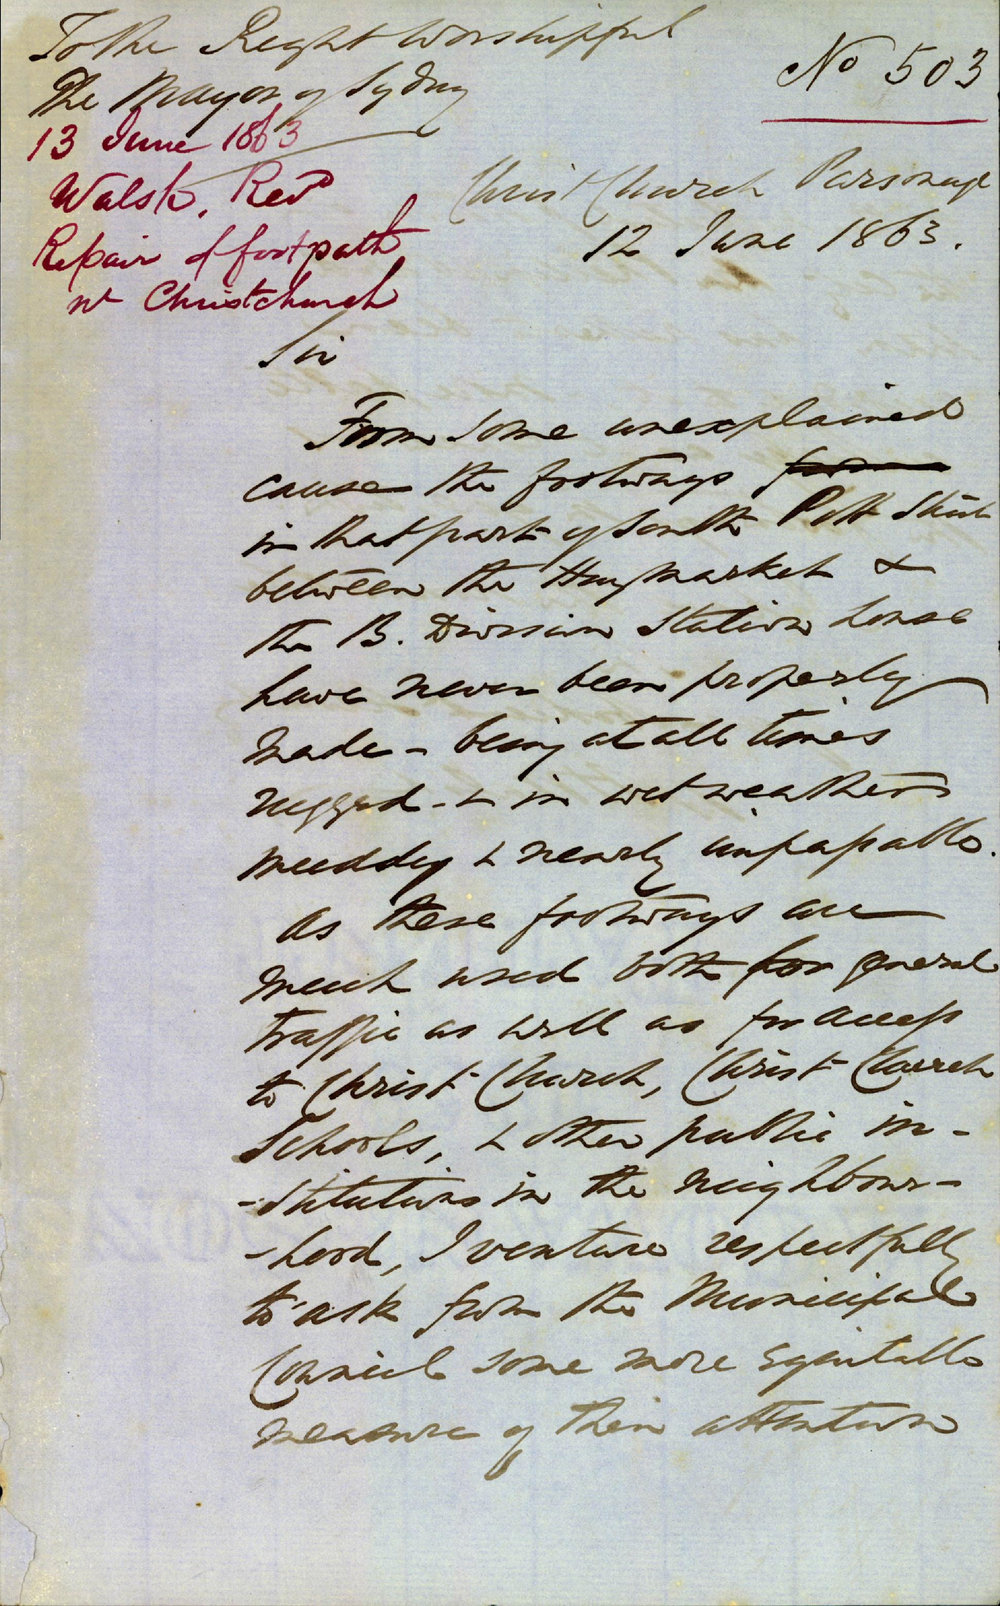 To the Right Worshipful
The Mayor of Sydney
No 503
13 June 1863
Walsh, Revd
Repair of footpath
nr Christchurch
Christ Church Parsonage
12 June 1863.
Sir
From some unexplained
cause the footways
in that part of South Pitt Street
between the Haymarket &
the B. Division Station house
have never been properly
made - being at all times
rugged - & in wet weather
muddy & nearly impassable.
As these footways are
much used both for general
traffic as well as for access
to Christ Church, Christ Church
Schools, & other public in-
-stitutions in the neighbour-
-hood, I venture respectfully
to ask from the Municipal
Council some more equitable
measure of their attention